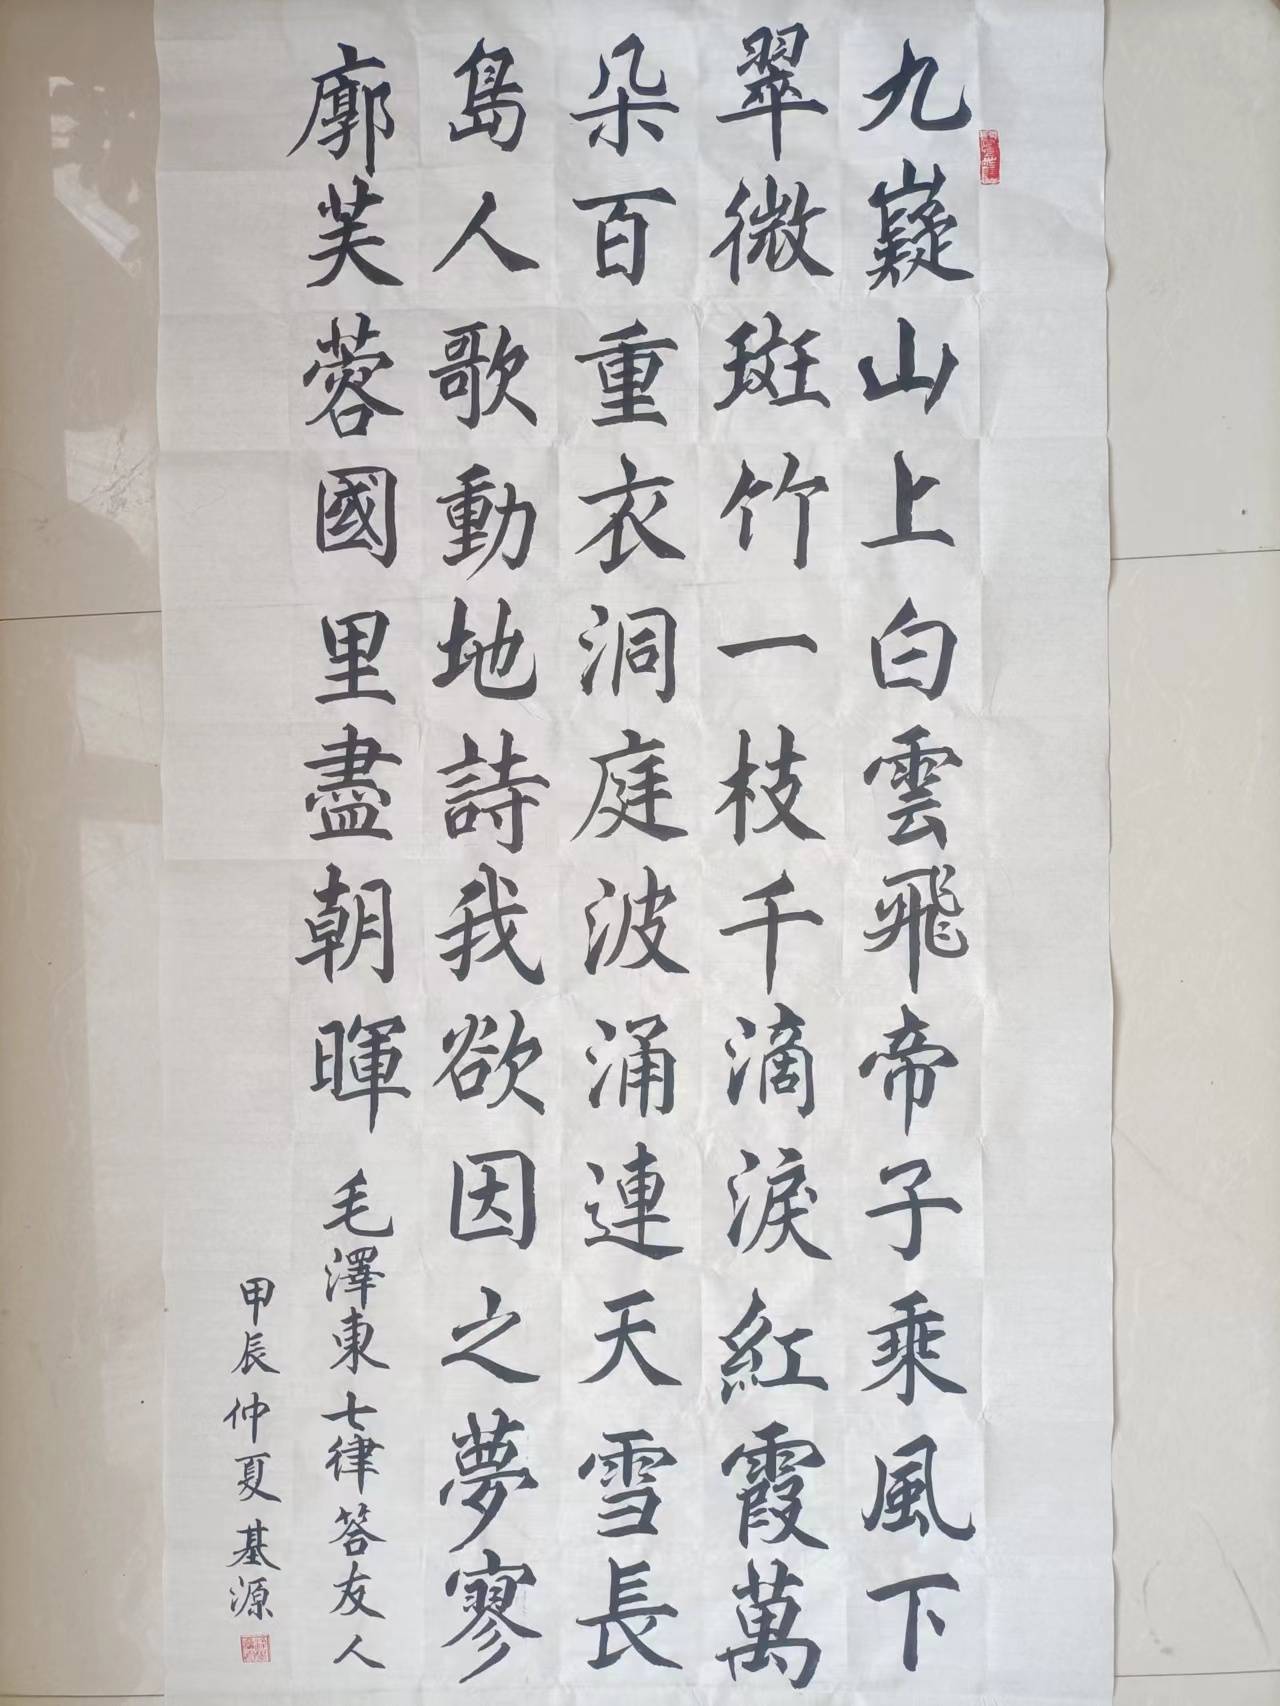 九嶷山上白雲飛帝子乘風下
翠微斑竹一枝千滴淚紅霞萬
朵百重衣洞庭波涌連天雪長
島人歌動地詩我欲因之夢寥
廓芙蓉國里盡朝暉
毛澤東七律答友人
甲辰仲夏基源